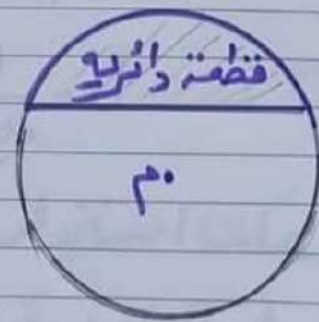 قطعة دائرية
م